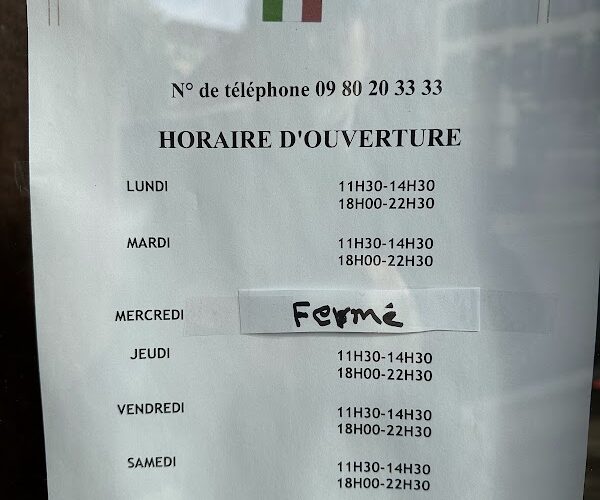 N° de téléphone 09 80 20 33 33
HORAIRE D'OUVERTURE
LUNDI 11H30-14H30
18H00-22H30
MARDI 11H30-14H30
18H00-22H30
MERCREDI Fermé
JEUDI 11H30-14H30
18H00-22H30
VENDREDI 11H30-14H30
18H00-22H30
SAMEDI 11H30-14H30
18H00-22H30